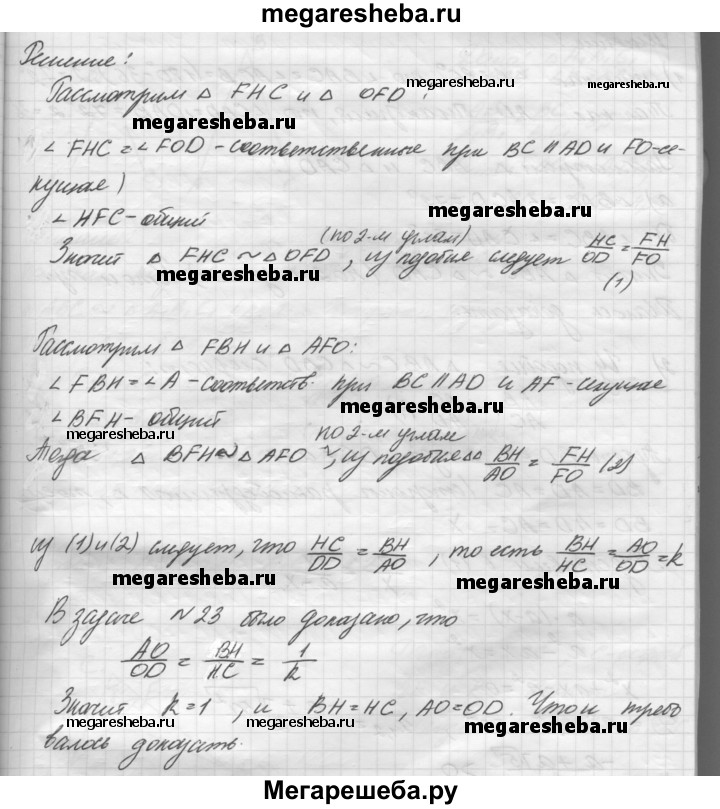 megaresheba.ru
Решение:
Рассмотрим △ FHC и △ OFD: megaresheba.ru
megaresheba.ru
∠ FHC = ∠ FOD - соответственные при BC ∥ AD и FO-се-
кущае)
∠ HFC - общий megaresheba.ru
(по 2-м углам)
Значит △ FHC ~ △ OFD, из подобие следует HC/OD = FH/FO
megaresheba.ru (1)
Рассмотрим △ FBH и △ AFO:
∠ FBH = ∠ A - соответств. при BC ∥ AD и AF - секущае
megaresheba.ru
∠ BFH - общий
megaresheba.ru по 2-м углам
Тогда △ BFH ~ △ AFO, из подобия △△ BH/AO = FH/FO (2)
megaresheba.ru
из (1) и (2) следует, что HC/OD = BH/AO, то есть BH/HC = AO/OD = k
megaresheba.ru megaresheba.ru
В задаче №23 было доказано, что
AO/OD = BH/HC = 1/k
Значит k=1, и BH=HC, AO=OD. Что и требо
megaresheba.ru megaresheba.ru megaresheba.ru
валось доказать.
Мегарешеба.ру